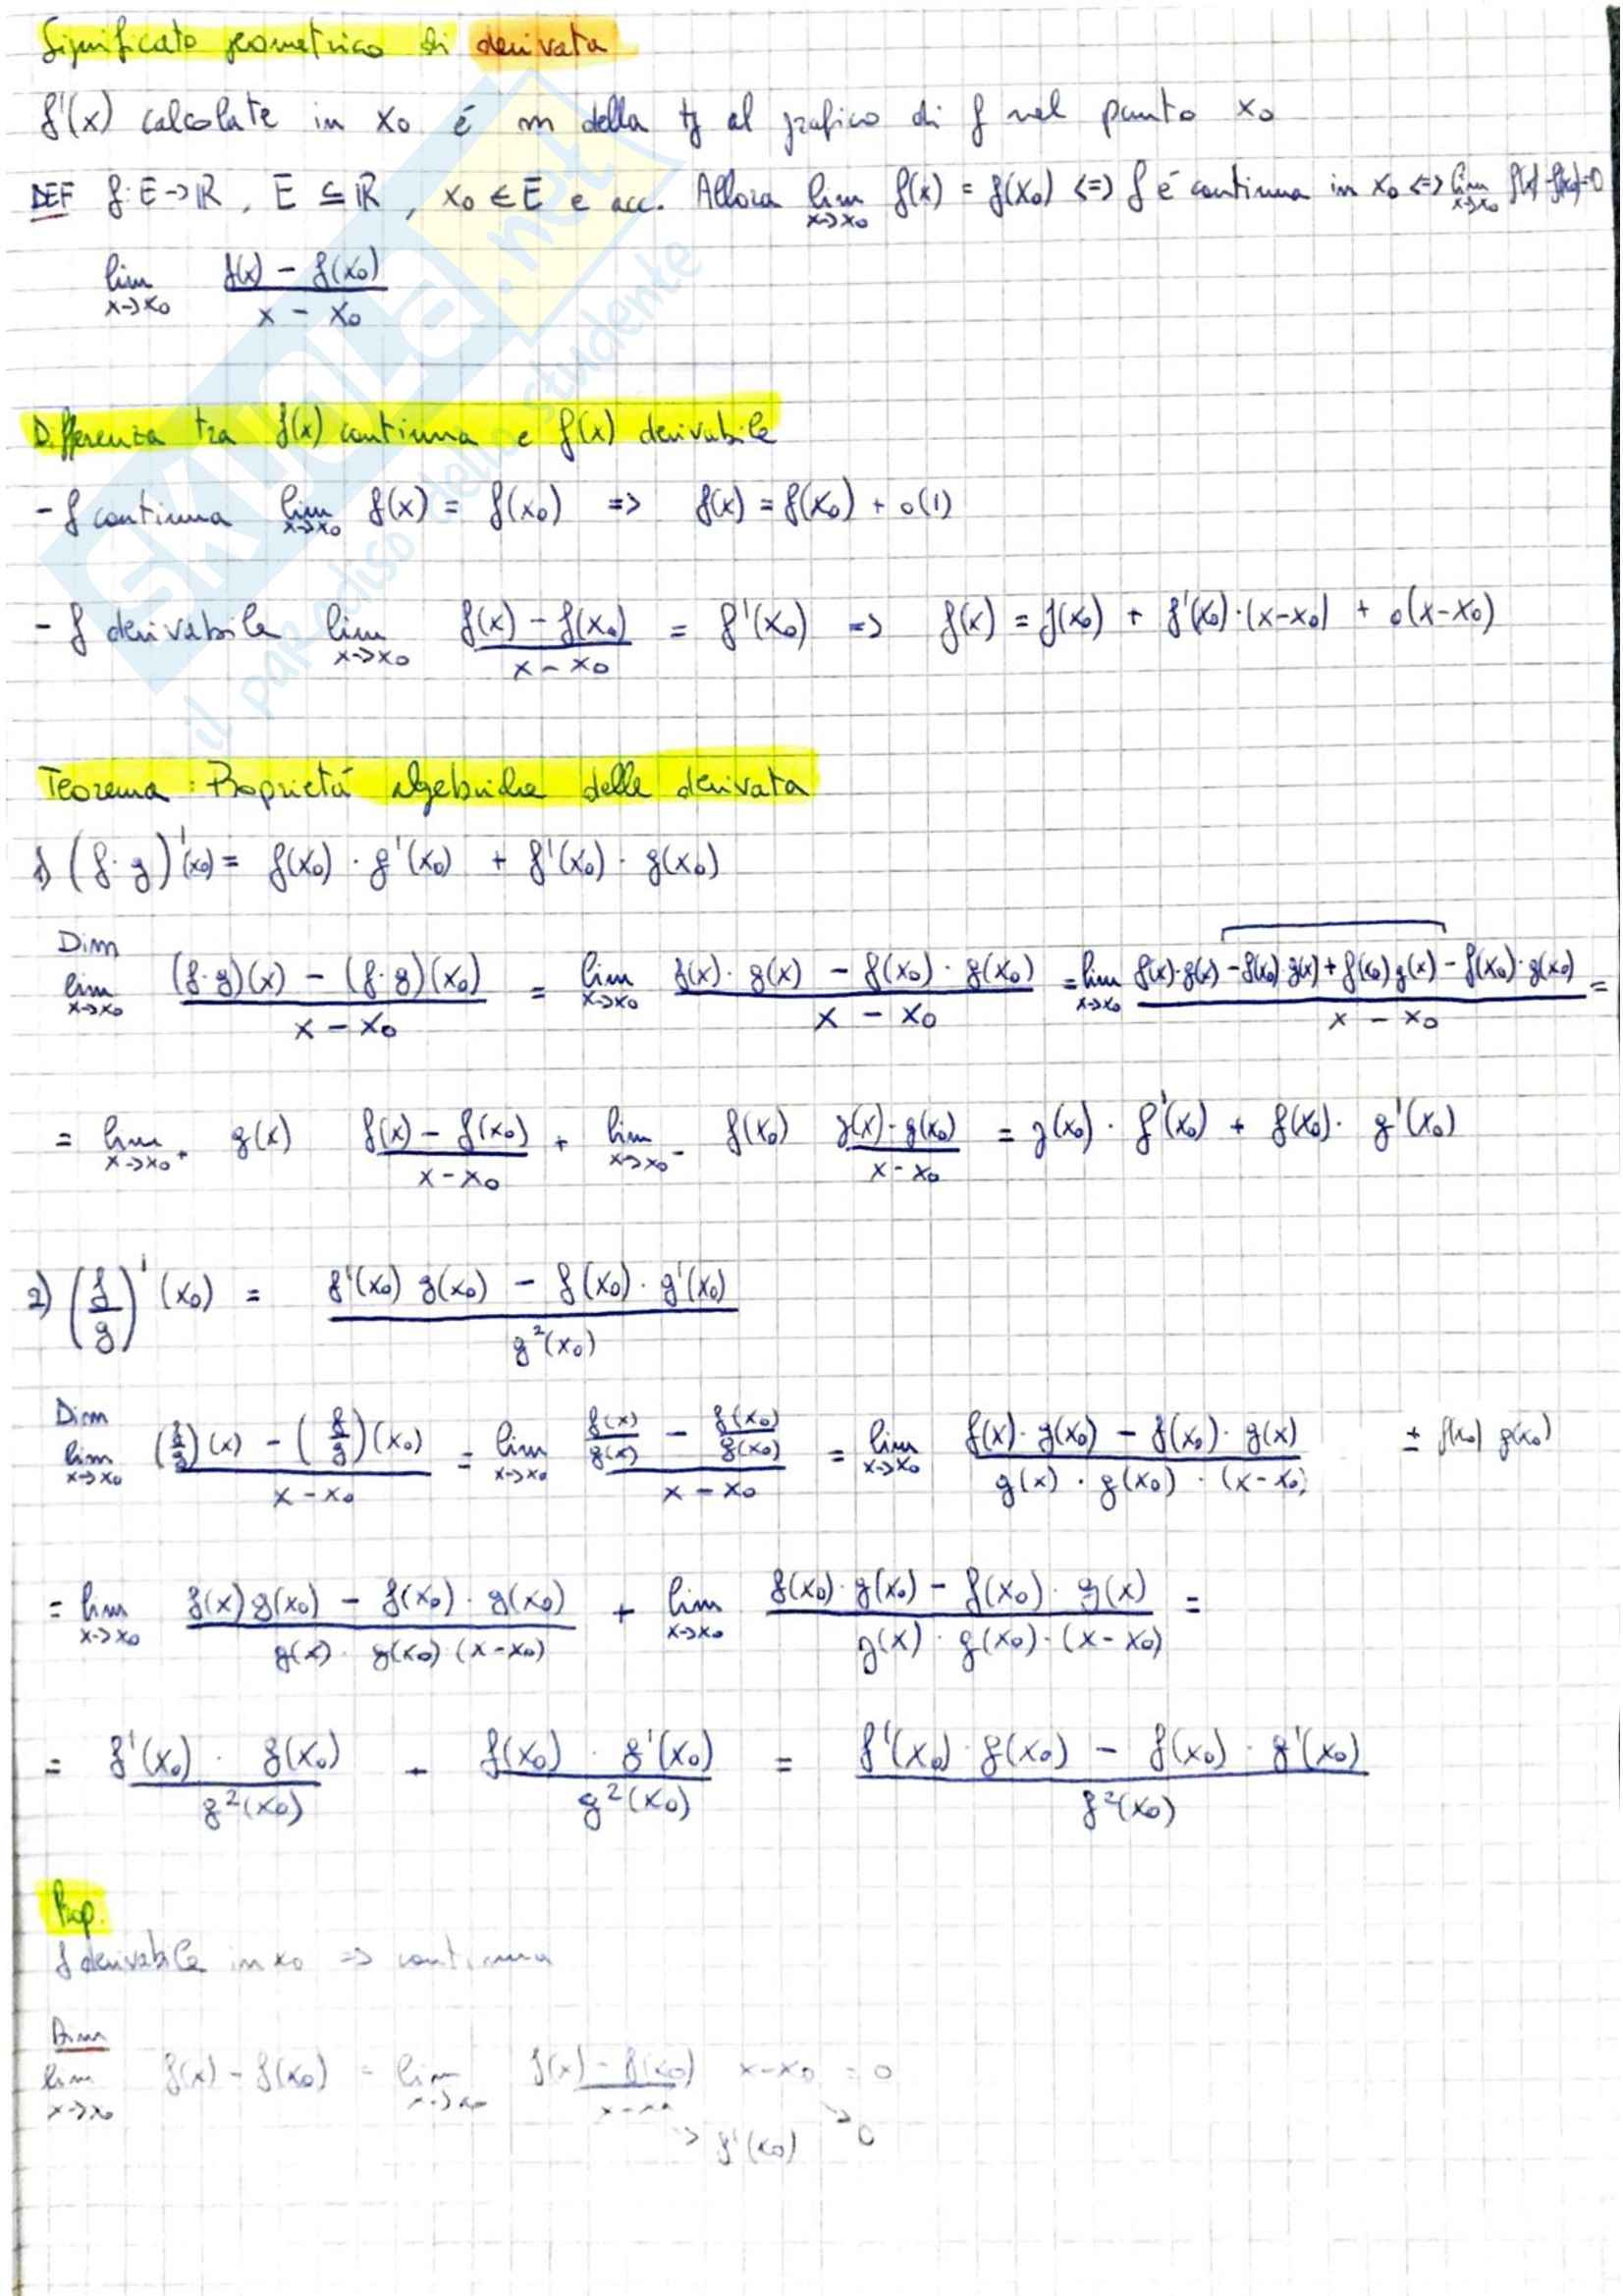 Significato geometrico di derivata
f'(x) calcolate in x₀ é m della tg al grafico di f nel punto x₀
DEF f: E → ℝ, E ⊆ ℝ, x₀ ∈ E e acc. Allora lim_{x→x₀} f(x) = f(x₀) <=> f é continua in x₀ <=> lim_{x→x₀} f(x)-f(x₀)=0
lim_{x→x₀} (f(x) - f(x₀))/(x - x₀)
Differenza tra f(x) continua e f(x) derivabile
- f continua lim_{x→x₀} f(x) = f(x₀) => f(x) = f(x₀) + o(1)
- f derivabile lim_{x→x₀} (f(x) - f(x₀))/(x - x₀) = f'(x₀) => f(x) = f(x₀) + f'(x₀)·(x-x₀) + o(x-x₀)
Teorema: Proprietá algebriche delle derivata
1) (f·g)'(x₀) = f(x₀)·g'(x₀) + f'(x₀)·g(x₀)
Dim
lim_{x→x₀} ((f·g)(x) - (f·g)(x₀))/(x - x₀) = lim_{x→x₀} (f(x)·g(x) - f(x₀)·g(x₀))/(x - x₀) = lim_{x→x₀} (f(x)·g(x) - f(x₀)·g(x) + f(x₀)g(x) - f(x₀)·g(x₀))/(x - x₀) =
= lim_{x→x₀} g(x) (f(x) - f(x₀))/(x-x₀) + lim_{x→x₀} f(x₀) (g(x)-g(x₀))/(x-x₀) = g(x₀)·f'(x₀) + f(x₀)·g'(x₀)
2) (f/g)'(x₀) = (f'(x₀) g(x₀) - f(x₀)·g'(x₀))/g²(x₀)
Dim
lim_{x→x₀} ((f/g)(x) - (f/g)(x₀))/(x-x₀) = lim_{x→x₀} (f(x)/g(x) - f(x₀)/g(x₀))/(x - x₀) = lim_{x→x₀} (f(x)·g(x₀) - f(x₀)·g(x))/(g(x)·g(x₀)·(x-x₀)) ± f(x₀) g(x₀)
= lim_{x→x₀} (f(x)g(x₀) - f(x₀)·g(x₀))/(g(x)·g(x₀)·(x-x₀)) + lim_{x→x₀} (f(x₀)·g(x₀) - f(x₀)·g(x))/(g(x)·g(x₀)·(x-x₀)) =
= (f'(x₀)·g(x₀))/g²(x₀) - (f(x₀)·g'(x₀))/g²(x₀) = (f'(x₀)·g(x₀) - f(x₀)·g'(x₀))/g²(x₀)
Prop.
f derivabile in x₀ => continua
Dim
lim_{x→x₀} f(x) - f(x₀) = lim_{x→x₀} (f(x) - f(x₀))/(x-x₀) x-x₀ = 0
→ f'(x₀) → 0
SKUOLA.net
il paradiso dello studente